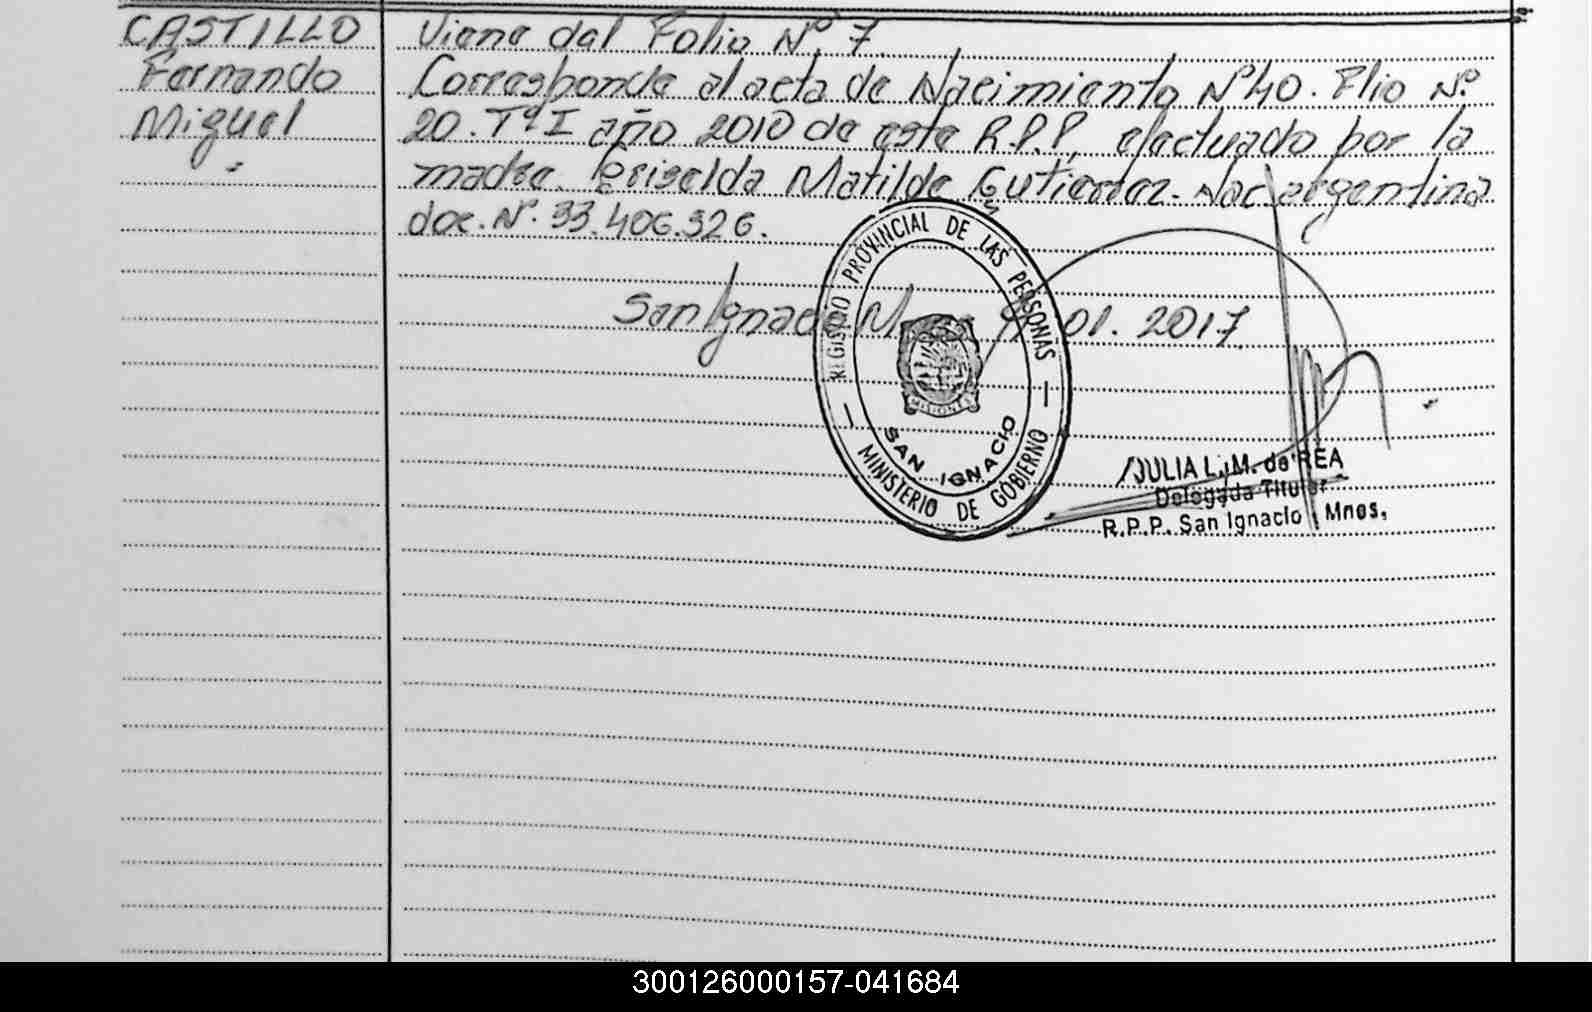 CASTILLO
Fernando
Miguel
Viene del Folio Nº 7
Corresponde al acta de Nacimiento Nº 40. Flio Nº
20. Tº I año 2010 de este R.P.P, efectuado por la
madre. Griselda Matilde Gutierrez. Nac argentina
doc. Nº. 33.406.326.
San Ignacio 01. 2017.
REGISTRO PROVINCIAL DE LAS PERSONAS
MINISTERIO DE GOBIERNO
MISIONES
SAN IGNACIO
JULIA L. M. de REA
Delegada Titular
R.P.P. San Ignacio Mnes,
300126000157-041684